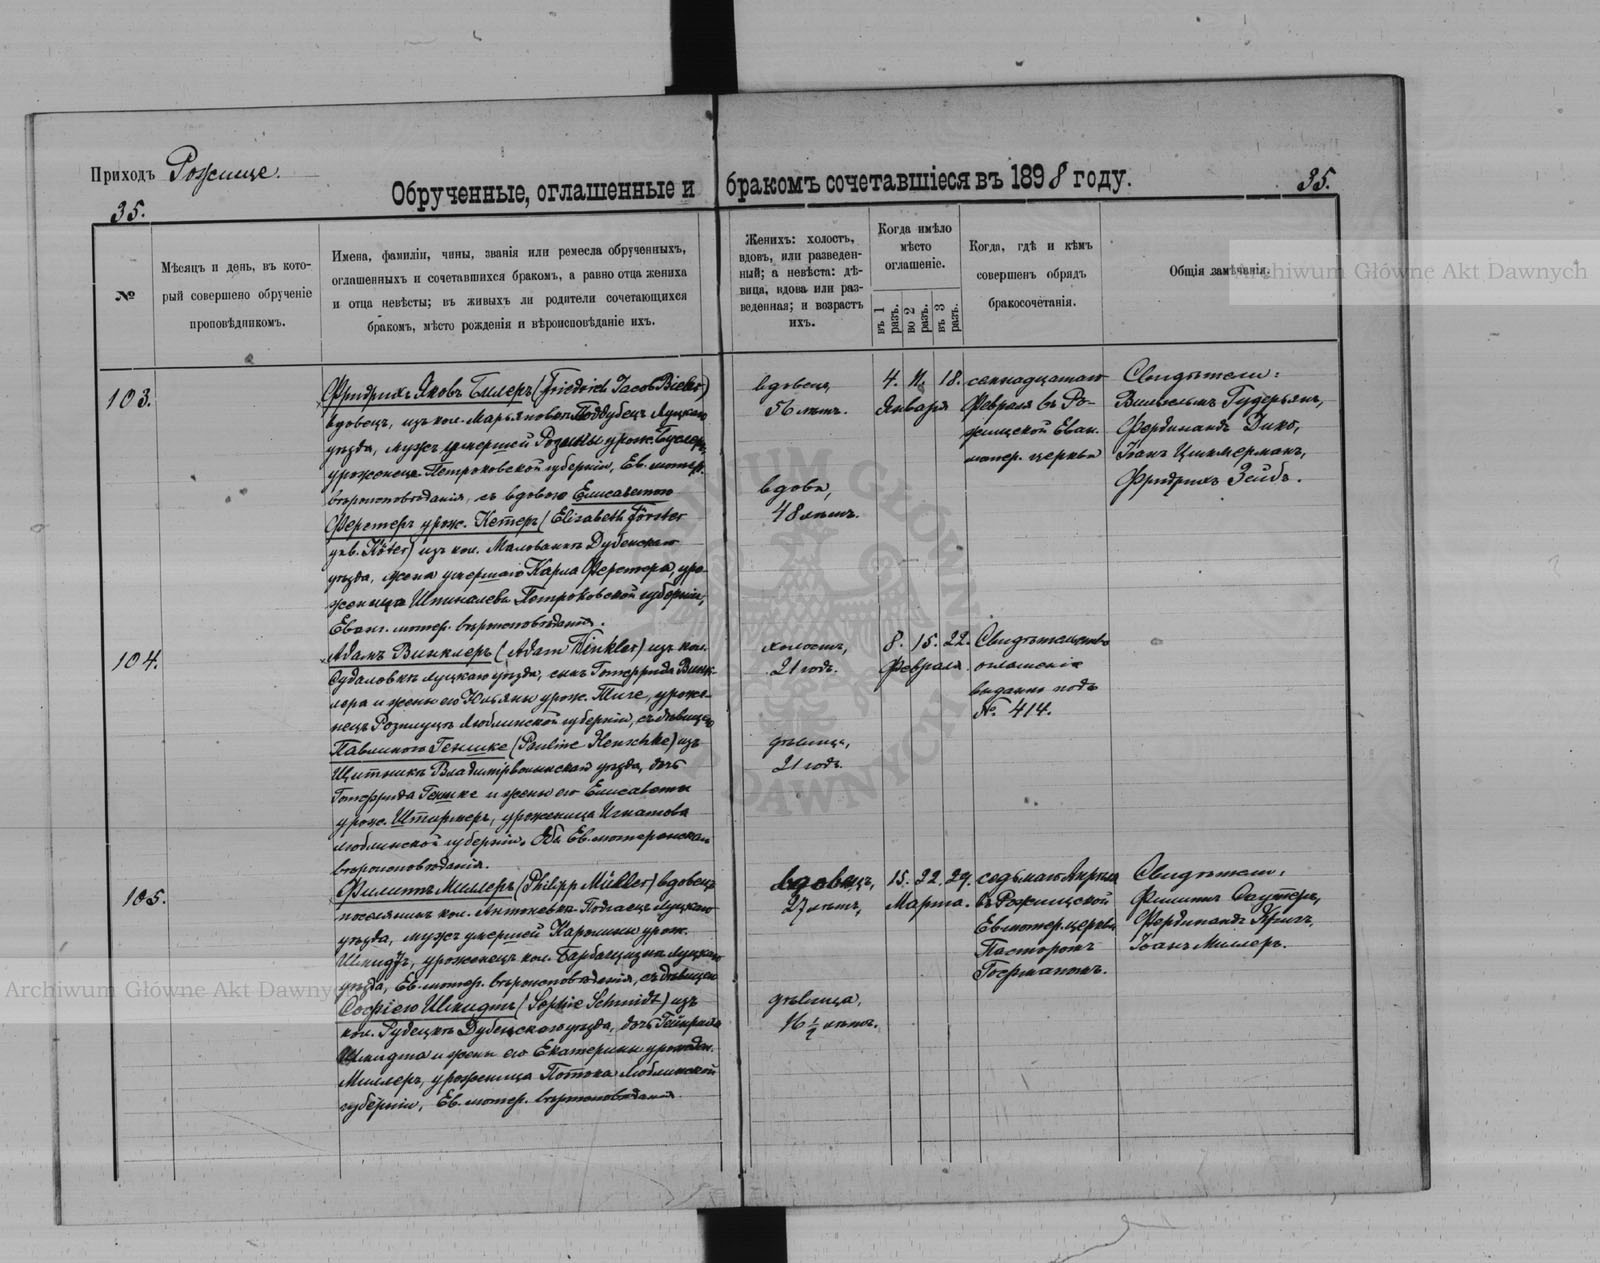 Приходъ Рожище.
Обрученные, оглашенные и бракомъ сочетавшіеся въ 1898 году.
35.
35.
№
Мѣсяцъ и день, въ кото-
рый совершено обрученіе
проповѣдникомъ.
Имена, фамиліи, чины, званія или ремесла обрученныхъ,
оглашенныхъ и сочетавшихся бракомъ, а равно отца жениха
и отца невѣсты; въ живыхъ ли родители сочетающихся
бракомъ, мѣсто рожденія и вѣроисповѣданіе ихъ.
Женихъ: холостъ,
вдовъ, или разведен-
ный; а невѣста: дѣ-
вица, вдова или раз-
веденная; и возрастъ
ихъ.
Когда имѣло
мѣсто
оглашеніе.
въ 1 разъ.
во 2 разъ.
въ 3 разъ.
Когда, гдѣ и кѣмъ
совершенъ обрядъ
бракосочетанія.
Общія замѣчанія.
Archiwum Główne Akt Dawnych
103.
Фридрихъ Яковъ Билеръ (Friedrich Jacob Bieler)
вдовецъ, изъ кол. Марьяновка Поддубецъ Луцкаго
уѣзда, мужъ умершей Розины урож.
уроженецъ Петроковской губерніи, Ев. лютер.
вѣроисповѣданія, съ вдовою Елисаветою
Ферстеръ урож. Кетеръ (Elizabeth Förster
geb. Köter) изъ кол. Малованкъ Дубенскаго
уѣзда, жена умершаго Карла Ферстера, уро-
женица Петроковской губерніи,
Еванг. лютер. вѣроисповѣданія.
вдовецъ
56 лѣтъ.
вдова,
48 лѣтъ.
4. 11. 18.
Января
семнадцатаго
Февраля въ Ро-
жищской Еван.
лютер. церкви
Свидѣтели:
Вильгельмъ Гудерьянъ,
Фердинандъ
Іоанъ Циммерманъ,
Фридрихъ Зейбъ.
104.
Адамъ Винклеръ (Adam Winkler) изъ кол.
Судаловкъ Луцкаго уѣзда, сынъ Готфрида Винк-
лера и жены его Юльяны урож. Тиле, уроже-
нецъ Люблинской губерніи, съ дѣвицею
Павлиною Геншке (Pauline Henschke) изъ
Щитникъ Владимірволынскаго уѣзда, дочь
Готфрида Геншке и жены его Елисаветы
урож. Штирмеръ, уроженица Игнатова
Люблинской губерніи. Оба Ев. лютеранскаго
вѣроисповѣданія.
холостъ,
21 годъ.
дѣвица,
21 годъ.
8. 15. 22.
Февраля
Свидѣтельство
оглашенія
выданно подъ
№ 414.
105.
Филиппъ Миллеръ (Philipp Müller) вдовецъ
поселянинъ кол. Антоновка Подгаецъ Луцкаго
уѣзда, мужъ умершей Каролины урож.
Шмидтъ, уроженецъ кол. Луцкаго
уѣзда, Ев. лютер. вѣроисповѣданія, съ дѣвицею
Софіею Шмидтъ (Sophie Schmidt) изъ
кол. Рудецкъ Дубенскаго уѣзда, дочь Гейнриха
Шмидта и жены его Екатерины урожден.
Миллеръ, уроженица Потока Люблинской
губерніи, Ев. лютер. вѣроисповѣданія.
вдовецъ,
27 лѣтъ,
дѣвица,
16 ½ лѣтъ.
15. 22. 29.
Марта.
седьмаго Апрѣля
въ Рожищской
Ев. лютер. церкви
Пасторомъ
Гофманомъ.
Свидѣтели:
Филиппъ
Фердинандъ
Іоанъ Миллеръ.
Archiwum Główne Akt Dawnych